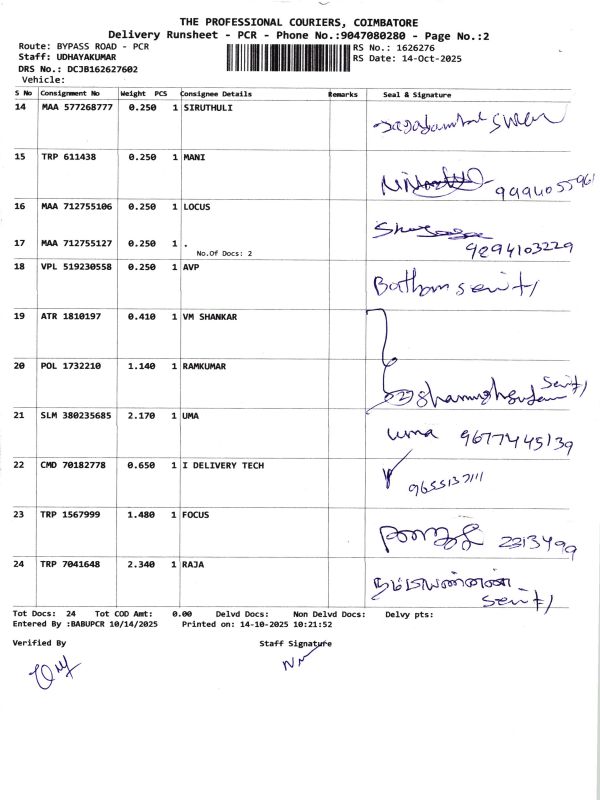 THE PROFESSIONAL COURIERS, COIMBATORE
Delivery Runsheet - PCR - Phone No.:9047080280 - Page No.:2
Route: BYPASS ROAD - PCR
RS No.: 1626276
Staff: UDHAYAKUMAR
RS Date: 14-Oct-2025
DRS No.: DCJB162627602
Vehicle:
S No Consignment No Weight PCS Consignee Details Remarks Seal & Signature
14 MAA 577268777 0.250 1 SIRUTHULI
15 TRP 611438 0.250 1 MANI
16 MAA 712755106 0.250 1 LOCUS
17 MAA 712755127 0.250 1 . 9294103229
No.Of Docs: 2
18 VPL 519230558 0.250 1 AVP
19 ATR 1810197 0.410 1 VM SHANKAR
20 POL 1732210 1.140 1 RAMKUMAR
21 SLM 380235685 2.170 1 UMA
uma 9677445139
22 CMD 70182778 0.650 1 I DELIVERY TECH
23 TRP 1567999 1.480 1 FOCUS
2313499
24 TRP 7041648 2.340 1 RAJA
Tot Docs: 24 Tot COD Amt: 0.00 Delvd Docs: Non Delvd Docs: Delvy pts:
Entered By :BABUPCR 10/14/2025 Printed on: 14-10-2025 10:21:52
Verified By Staff Signature